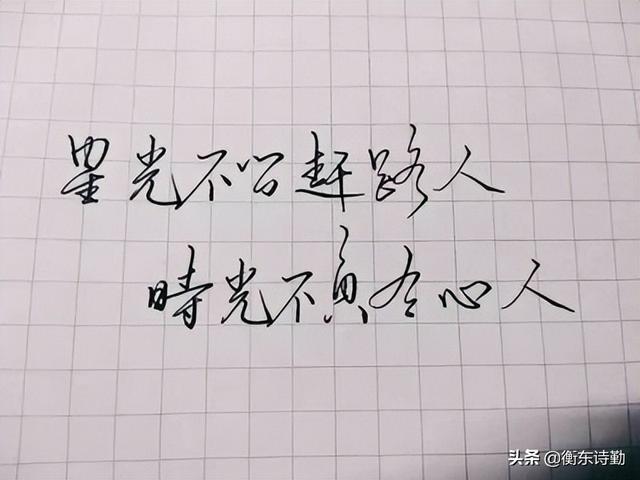 星光不问赶路人
時光不負有心人
头条 @衡东诗勤